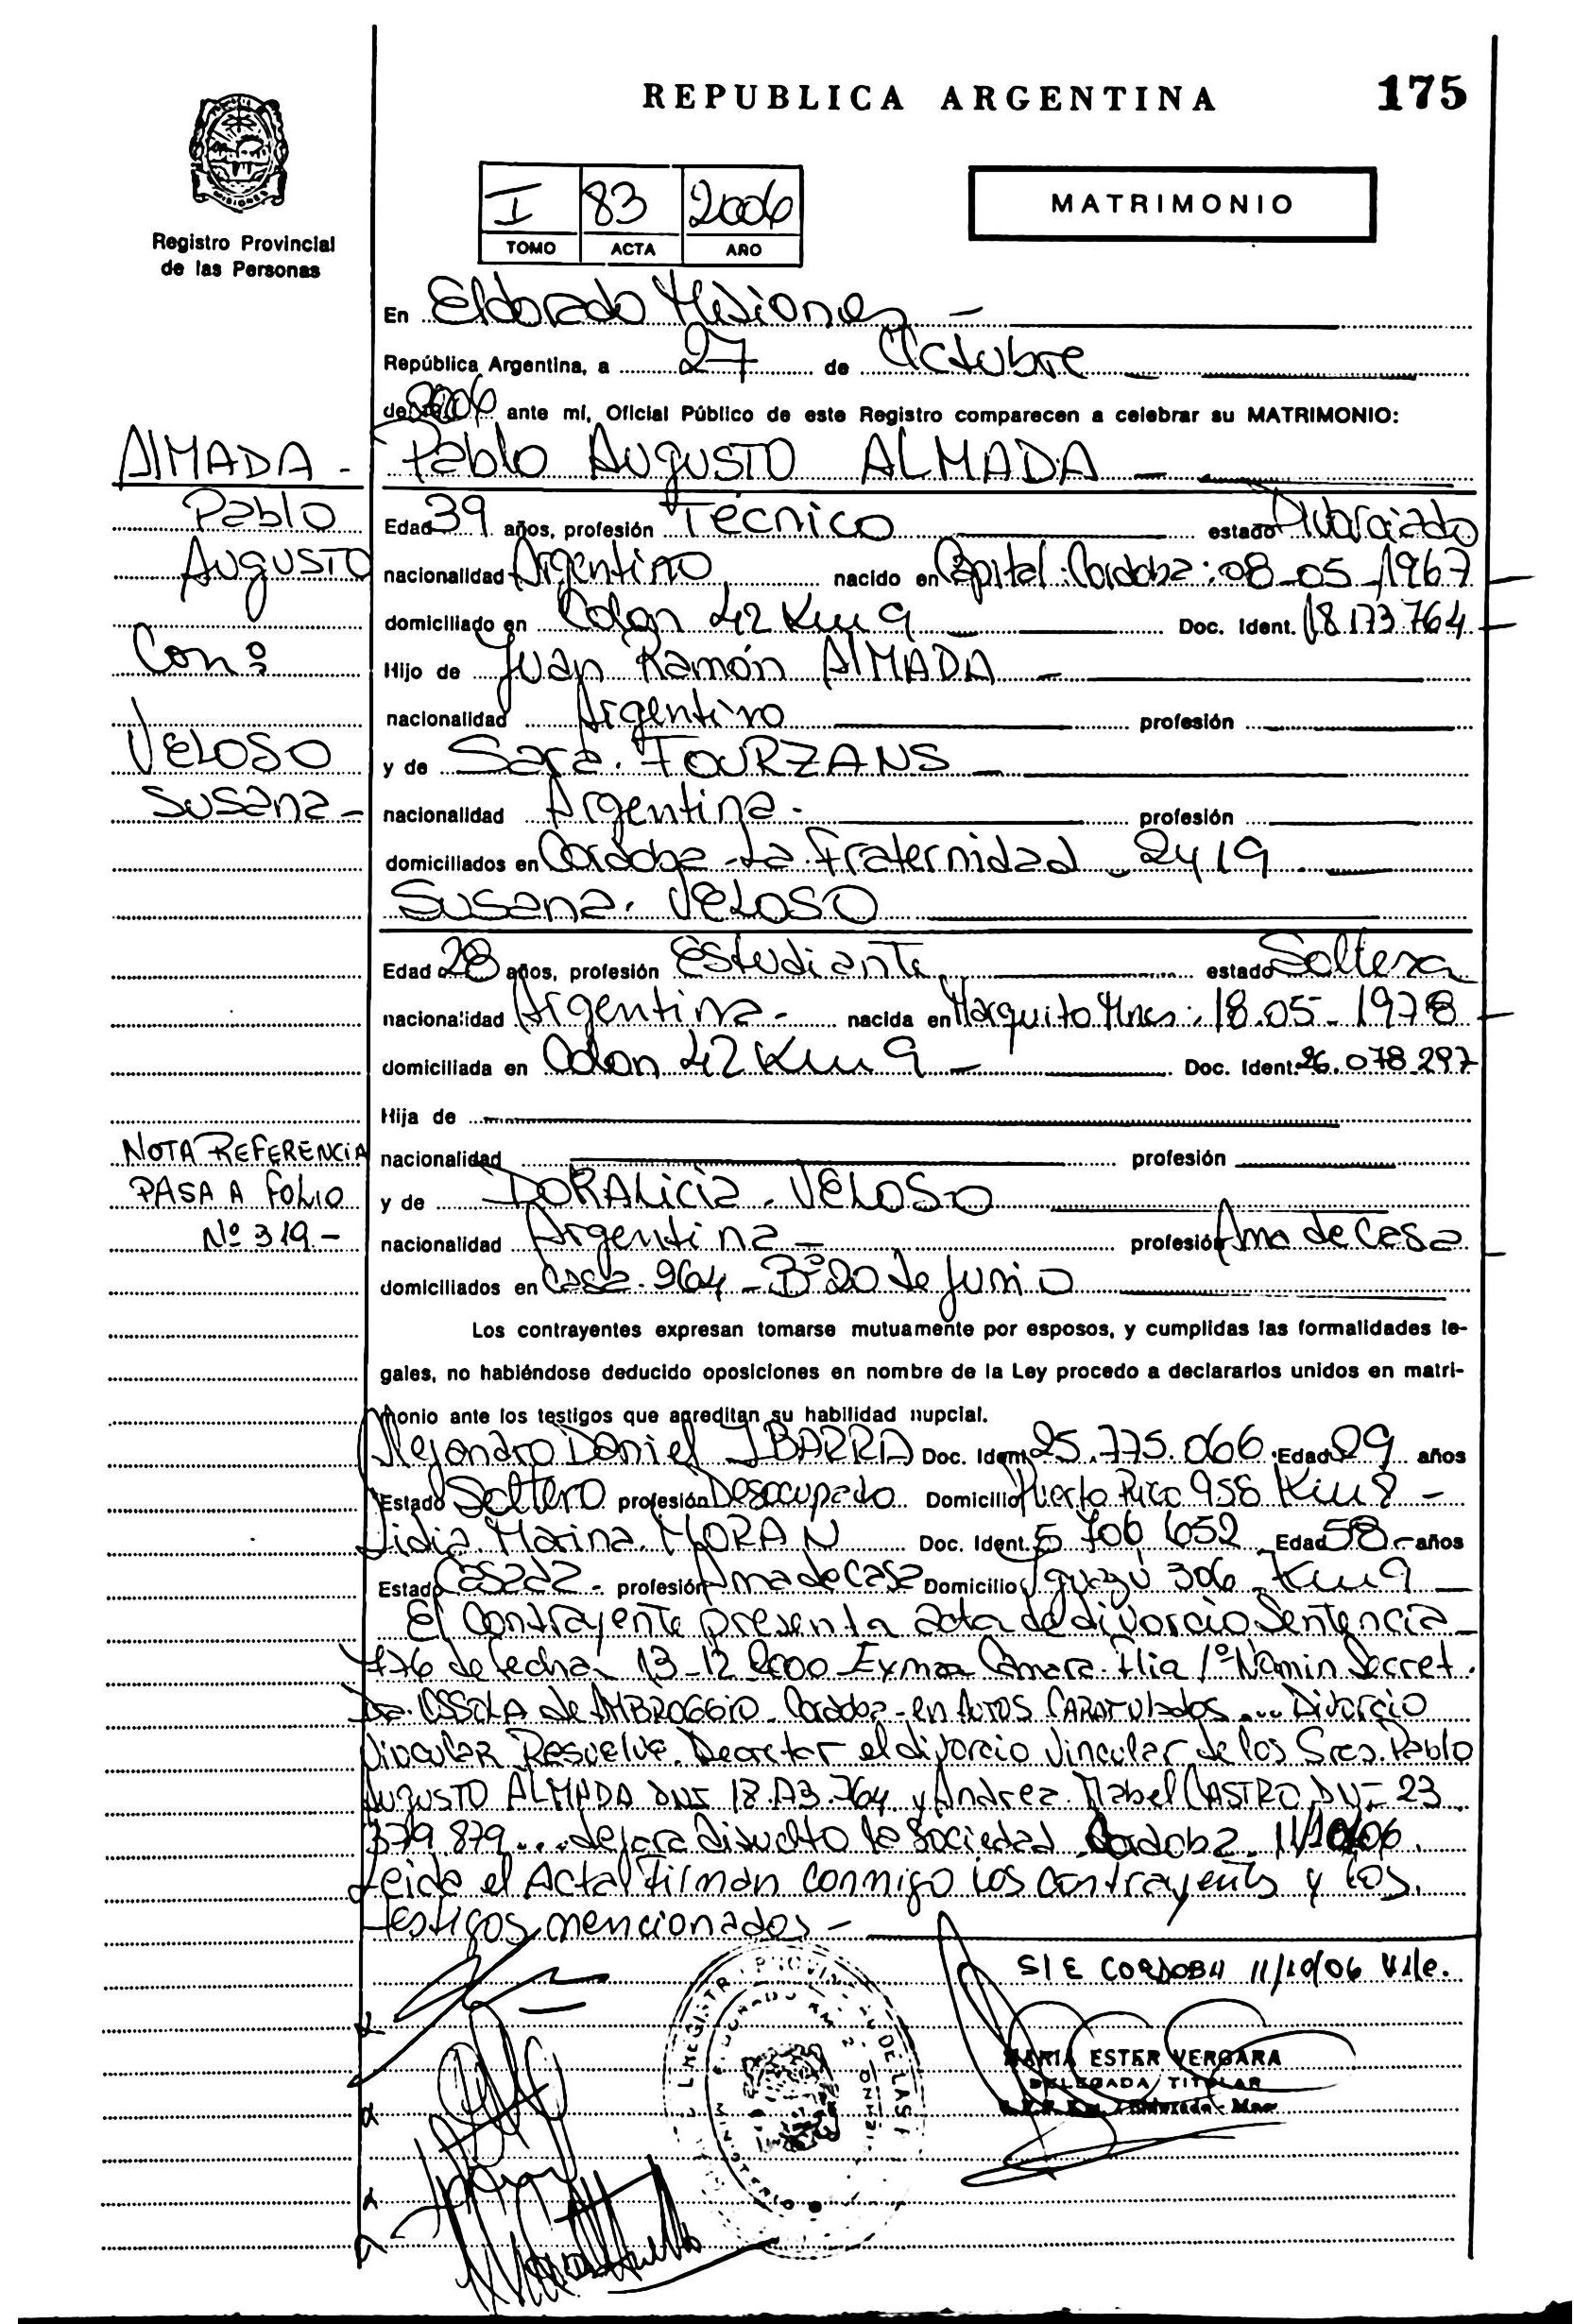 REPUBLICA ARGENTINA 175
Registro Provincial
de las Personas
I 83 2006
TOMO ACTA AÑO
MATRIMONIO
En Eldorado Misiones -
República Argentina, a 27 de Octubre
de 2006 ante mí, Oficial Público de este Registro comparecen a celebrar su MATRIMONIO:
ALMADA -
Pablo
Augusto
Con:
VELOSO
Susana -
NOTA REFERENCIA
PASA A FOLIO
Nº 319.-
Pablo Augusto ALMADA -
Edad 39 años, profesión Técnico estado Divorciado
nacionalidad Argentino nacido en Capital. Cordoba: 08-05-1967
domiciliado en Colon 42 Km 9 Doc. Ident. 18.173.764
Hijo de Juan Ramón ALMADA -
nacionalidad Argentino profesión
y de Sara. FOURZANS -
nacionalidad Argentina - profesión
domiciliados en Cordoba - La Fraternidad - 2419
Susana. VELOSO
Edad 28 años, profesión Estudiante estado Soltera
nacionalidad Argentina - nacida en Mnes: 18.05-1978
domiciliada en Colon 42 Km 9 - Doc. Ident. 26.078.297
Hija de
nacionalidad profesión
y de DORALicia. VELOSO
nacionalidad Argentina - profesión Ama de Casa
domiciliados en Casa. 964 - Bº 20 de Junio
Los contrayentes expresan tomarse mutuamente por esposos, y cumplidas las formalidades le-
gales, no habiéndose deducido oposiciones en nombre de la Ley procedo a declararlos unidos en matri-
monio ante los testigos que acreditan su habilidad nupcial.
Alejandro Daniel IBARRA Doc. Ident. 25.775.066 Edad 29 años
Estado Soltero profesión Desocupado Domicilio Puerto Rico 958 Km 8 -
Lidia Marina MORAN Doc. Ident. 5 706 652 Edad 58 - años
Estado Casada - profesión Ama de Casa Domicilio Iguazú 306 - Km 9 -
El Contrayente presenta acta de divorcio Sentencia
776 de fecha 13-12 2000 Exma Cámara. Flia 1º Nomin Secret.
Dra. OSSOLA de AMBROGGIO - Cordoba - en Autos CARATulados ... Divorcio
Vincular Resuelve. Decretar el divorcio Vincular de los Sres. Pablo
Augusto ALMADA DNI 18.173.764 y Andrea Mabel CASTRO DNI 23
379.879 ... dejara disuelto la Sociedad. Cordoba. 11/10/06.
Leida el Acta Firman conmigo los contrayentes y los
testigos mencionados -
S/E CORDOBA 11/10/06 Vale.
MARIA ESTER VERGARA
DELEGADA TITULAR